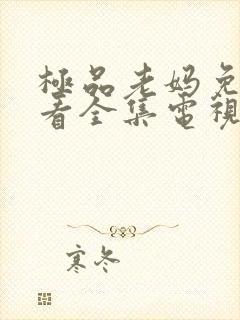 極品老妈免
看全集電視
寒冬